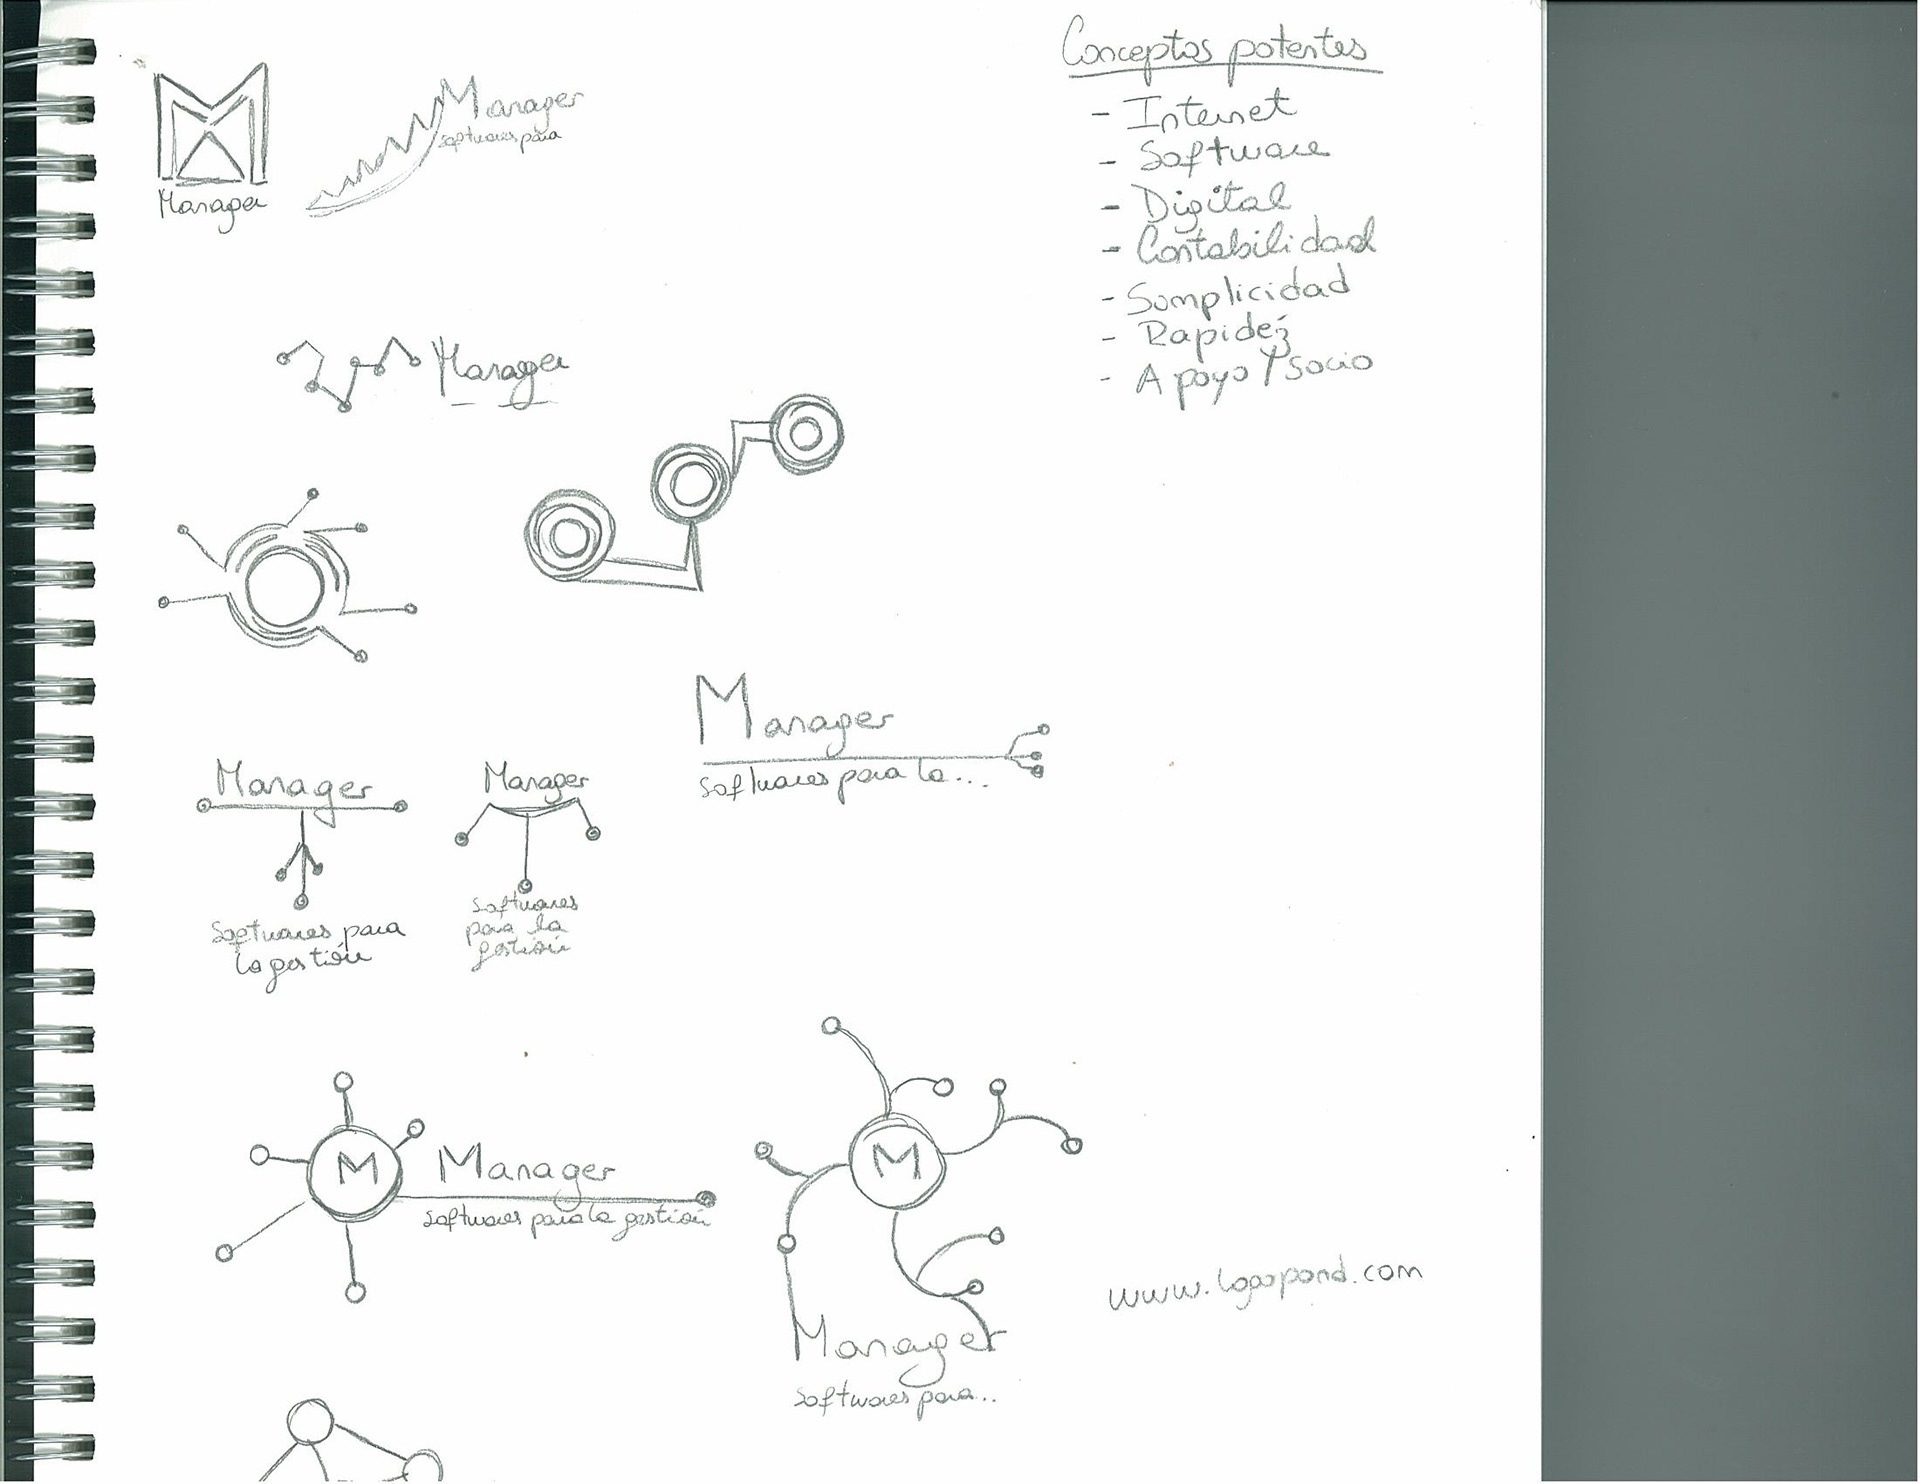 Conceptos potentes
- Internet
- Software
- Digital
- Contabilidad
- Somplicidad
- Rapidéz
- Apoyo / socio
Manager
Manager
Softwares para
Manager
Manager
Softwares para la...
Manager
Softwares para
la gestión
Manager
Softwares
para la
gestión
M
Manager
Softwares para la gestión
M
Manager
Softwares para...
www.logopond.com